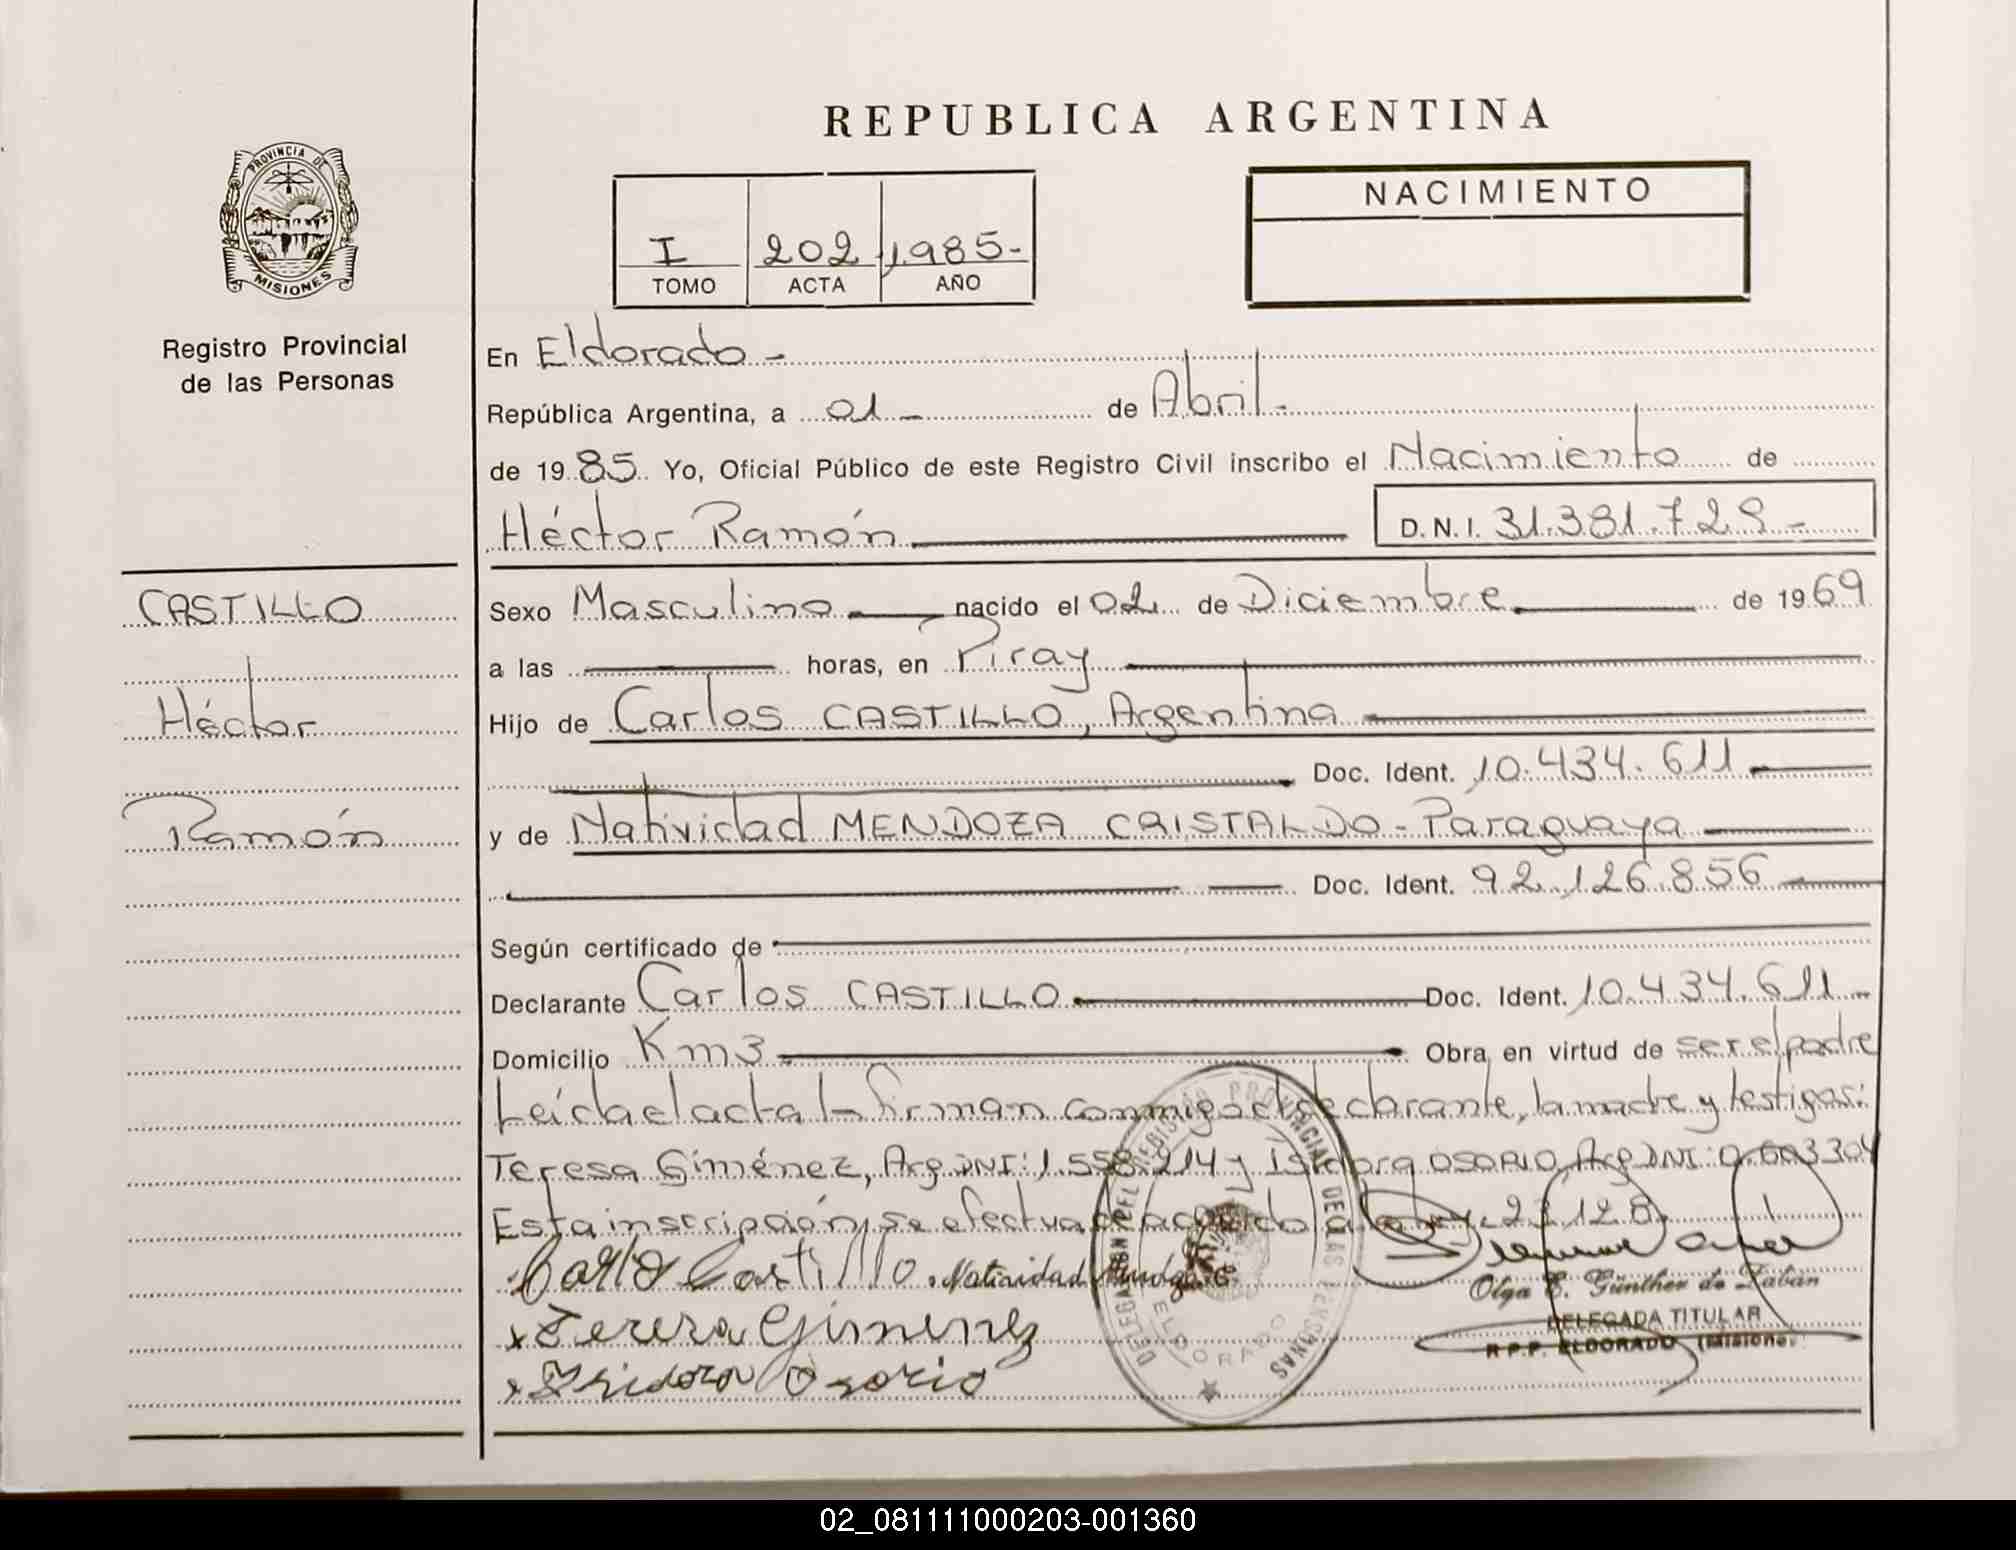 REPUBLICA ARGENTINA
PROVINCIA DE
MISIONES
Registro Provincial
de las Personas
I 202 1985-
TOMO ACTA AÑO
NACIMIENTO
En Eldorado -
República Argentina, a 01 - de Abril -
de 19 85 Yo, Oficial Público de este Registro Civil inscribo el Nacimiento de
Héctor Ramón D.N.I. 31.381.729 -
CASTILLO
Héctor
Ramón
Sexo Masculino nacido el 02 de Diciembre de 19 69
a las horas, en Piray
Hijo de Carlos CASTILLO, Argentina
Doc. Ident. 10.434.611
y de Natividad MENDOZA CRISTALDO - Paraguaya
Doc. Ident. 92.126.856
Según certificado de
Declarante Carlos CASTILLO Doc. Ident. 10.434.611 -
Domicilio Km3 Obra en virtud de ser el padre
Leída el acta la firman conmigo el declarante, la madre y testigos:
Teresa Giménez, Arg DNI: 1.558.214 y Isidora OSORIO, Arg DNI:
Esta inscripción se efectua de acuerdo a la Ley 23.128
Carlos Castillo. Natividad Mendoza C.
x Teresa Gimenez
x Isidora Osorio
DELEGACION DEL REGISTRO PROVINCIAL DE LAS PERSONAS
ELDORADO
Olga E. Günther de Zabán
DELEGADA TITULAR
R.P.P. ELDORADO (Misiones
02_081111000203-001360